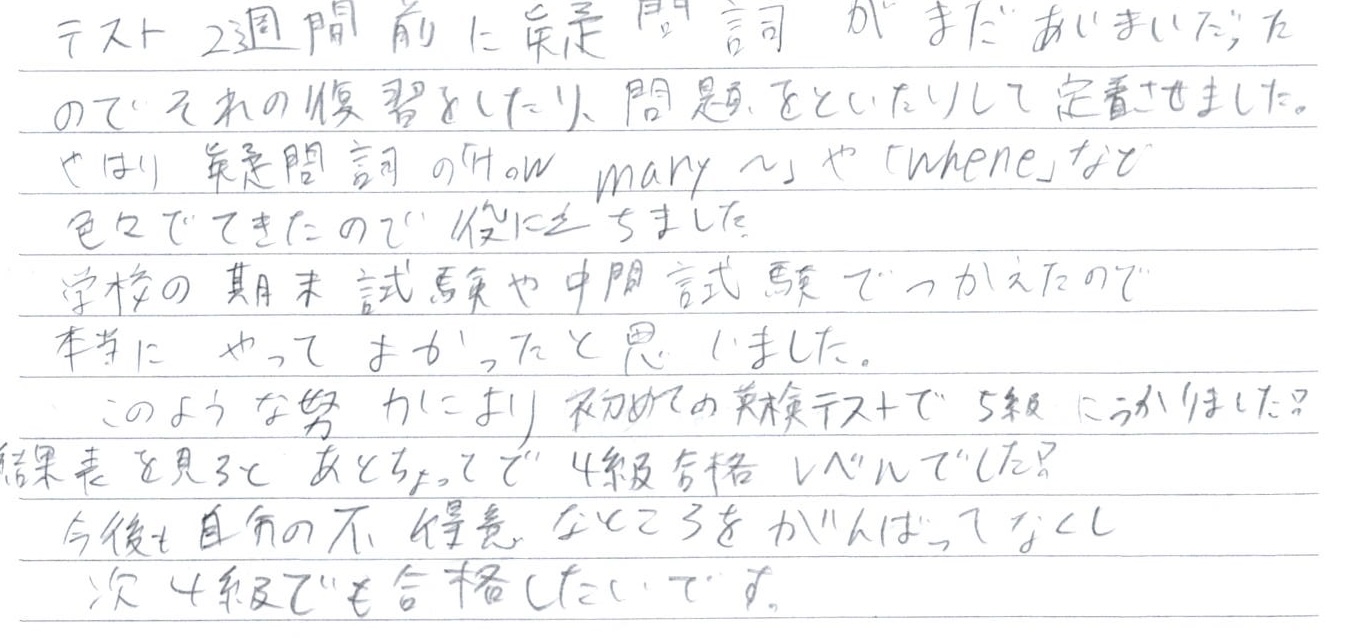 テスト2週間前に疑問詞がまだあいまいだった
のでそれの復習をしたり、問題をといたりして定着させました。
やはり疑問詞の「How many ～」や「where」など
色々でてきたので役に立ちました
学校の期末試験や中間試験でつかえたので
本当に やってよかったと思いました。
このような努力により初めての英検テストで5級にうかりました?
結果表を見るとあとちょっとで4級合格レベルでした?
今後も自分の不得意なところをがんばってなくし
次4級でも合格したいです。